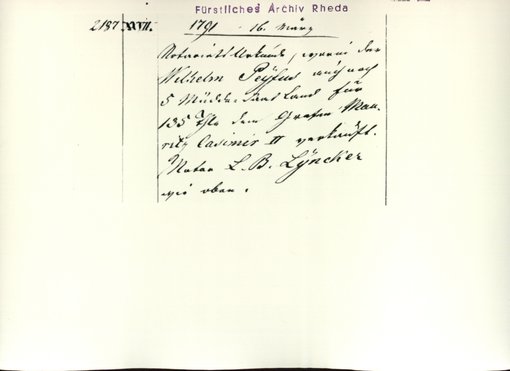 Fürstliches Archiv Rheda
2187 XXVII. 1791 - 16. März
Notariats-Urkunde, worin der
Wilhelm auch noch
5 Müdde Saat Land für
135 Thlr dem Grafen Mau-
ritz Casimir II verkauft.
Notar L. B. Lyncker
wie oben.